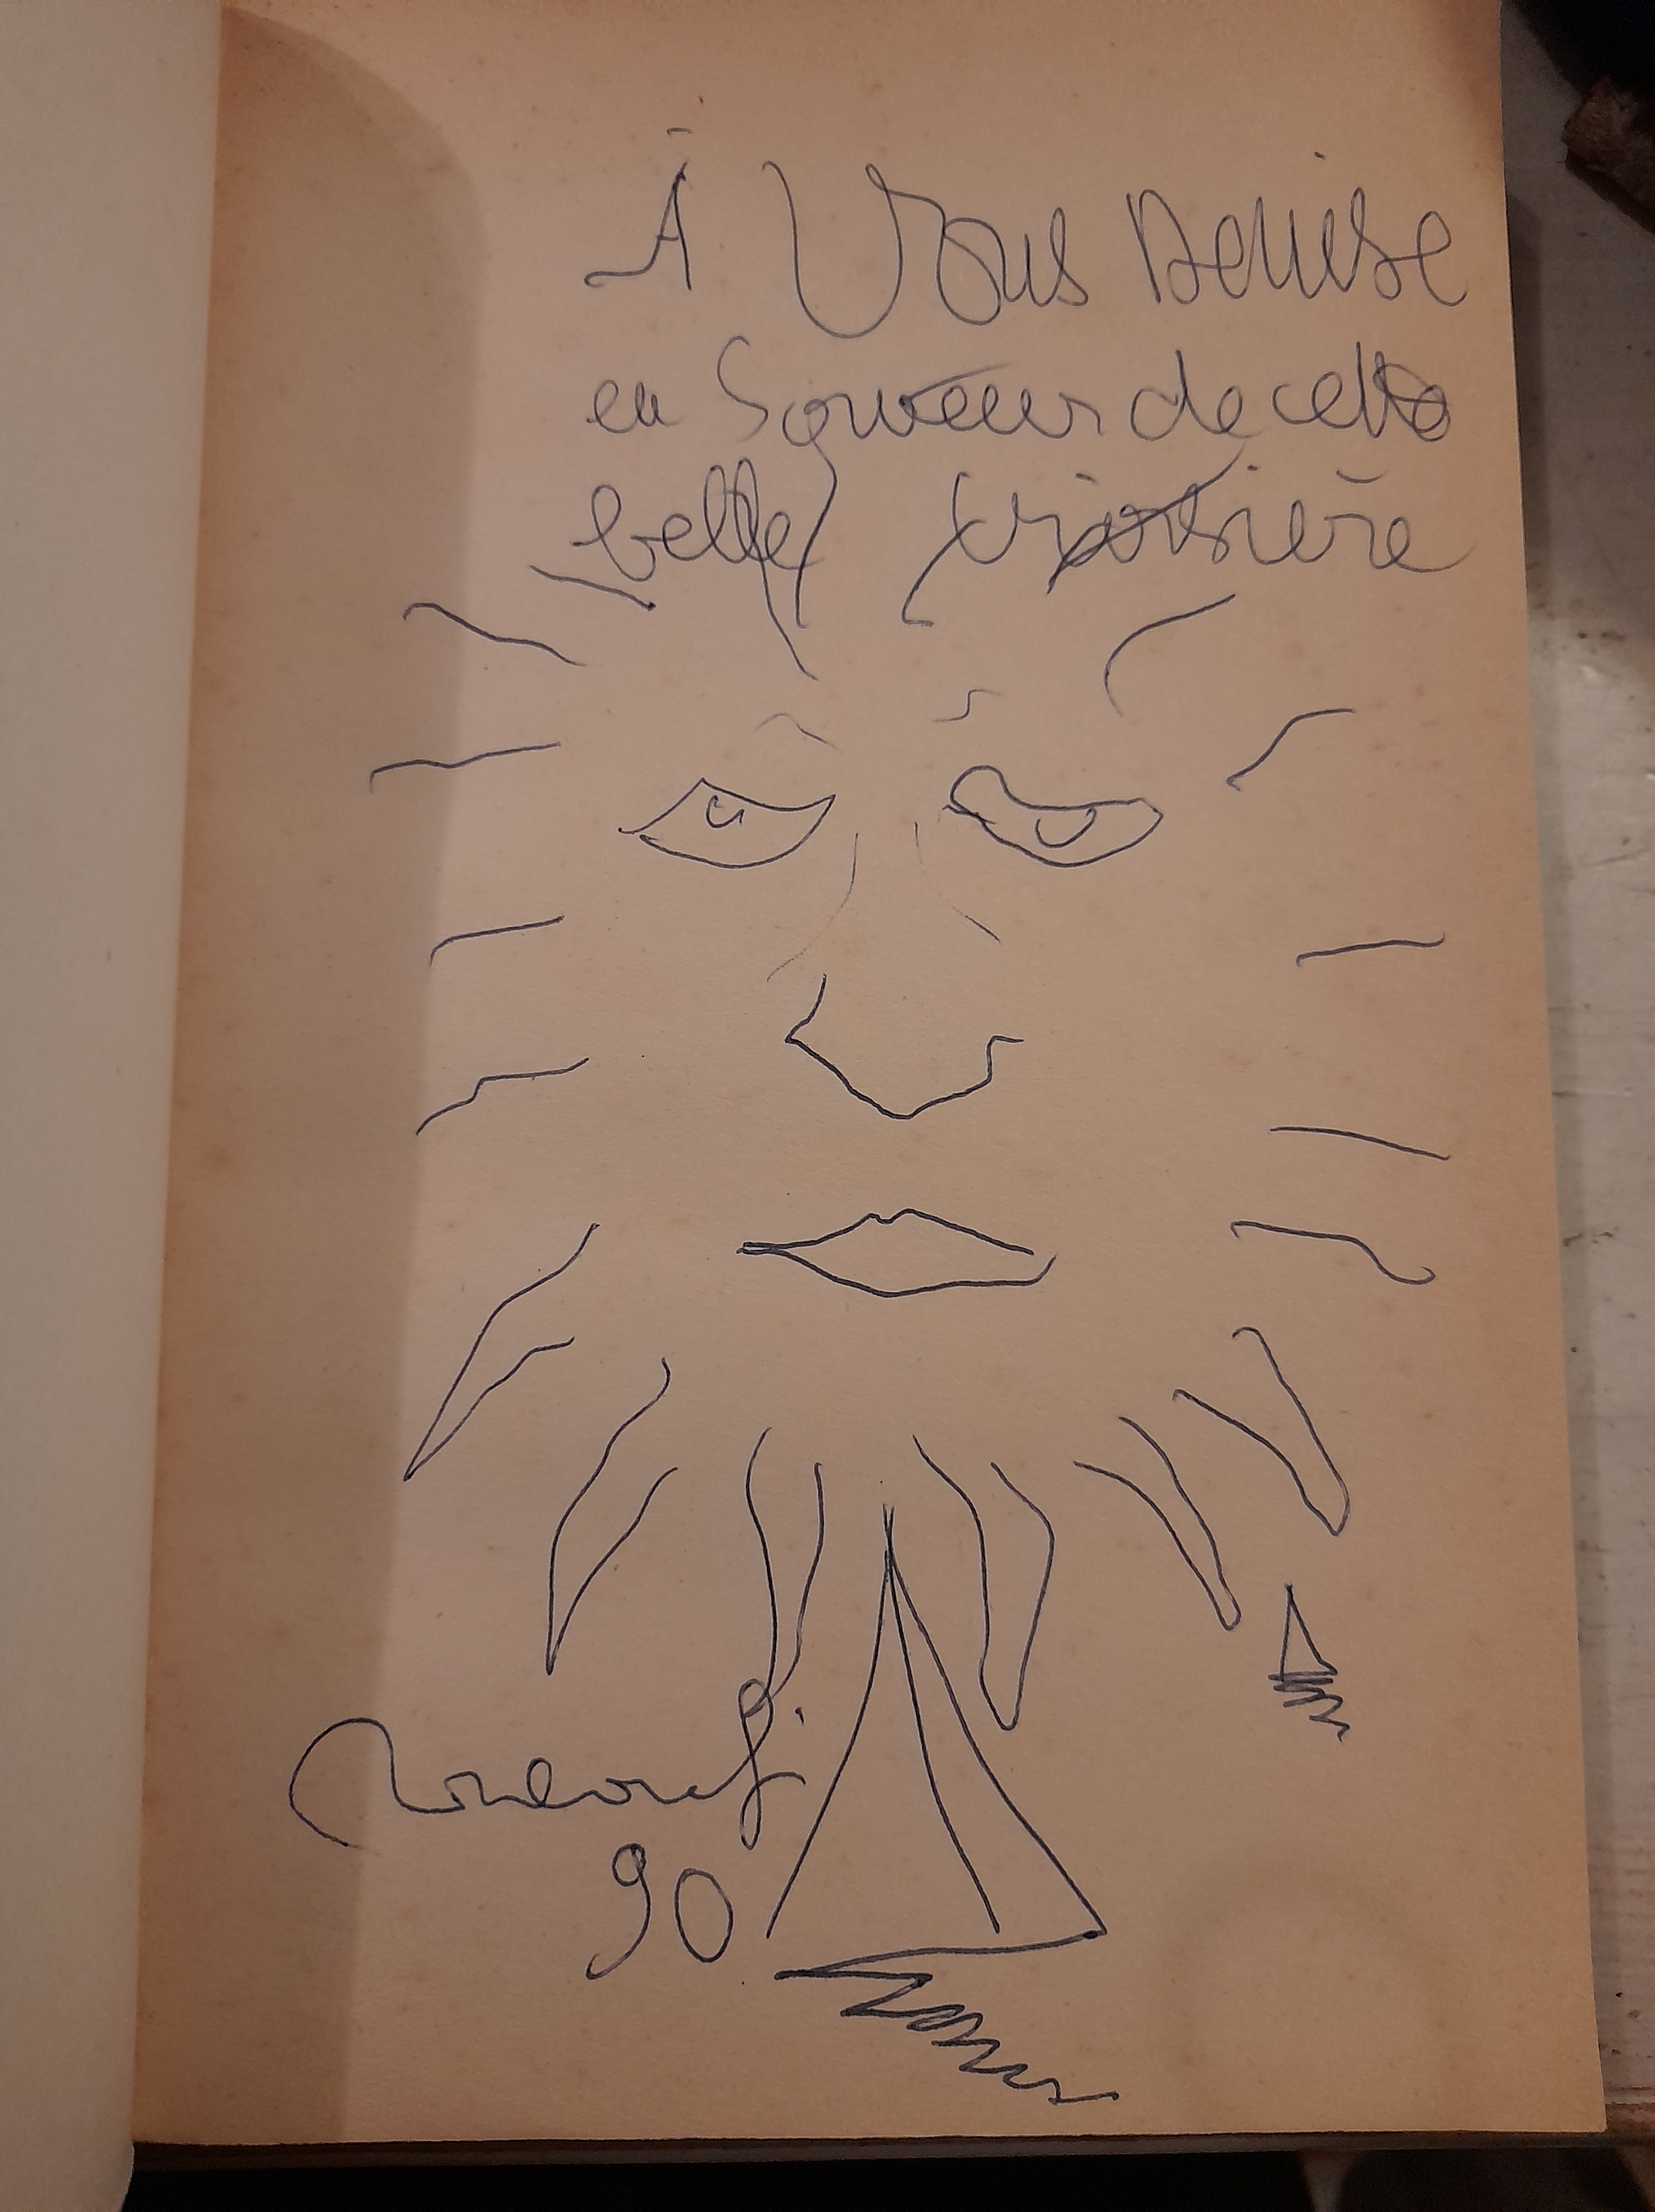 À Vous Denise
en Souvenir de cette
belle croisière
90